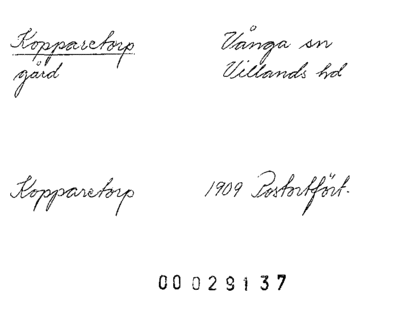 Kopparetorp Vånga sn
gård Villands hd
Kopparetorp 1909 Postortfört.
00029137